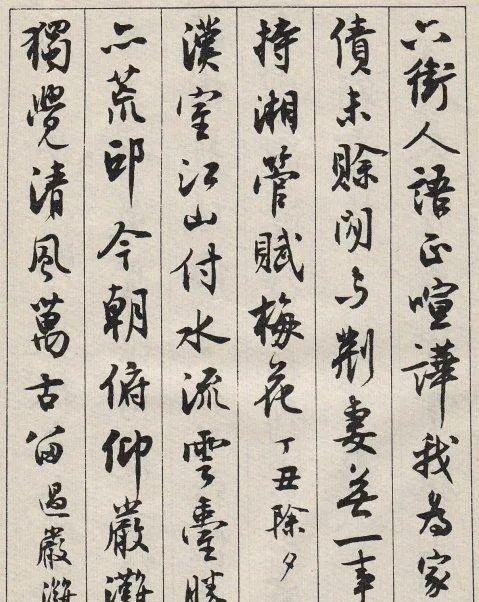 六街人語正喧譁我為家
債未賒閒与荆妻無一事
持湘管賦梅花丁丑除夕
漢室江山付水流雲臺勝
亦荒邱今朝俯仰嚴灘
獨覺清風萬古留過嚴灘